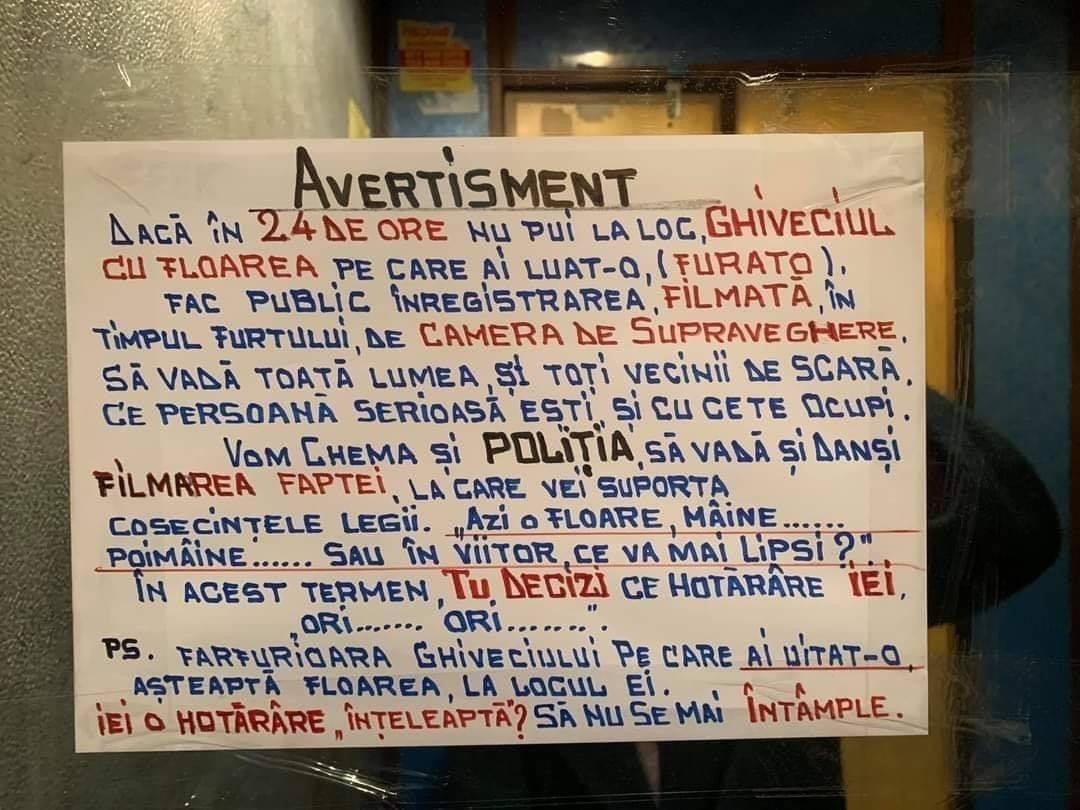 AVERTISMENT
DACĂ ÎN 24 DE ORE NU PUI LA LOC, GHIVECIUL
CU FLOAREA PE CARE AI LUAT-O, (FURATO).
FAC PUBLIC ÎNREGISTRAREA, FILMATĂ, ÎN
TIMPUL FURTULUI, DE CAMERA DE SUPRAVEGHERE.
SĂ VADĂ TOATĂ LUMEA, ȘI TOȚI VECINII DE SCARĂ.
CE PERSOANĂ SERIOASĂ EȘTI, ȘI CU CETE OCUPI.
VOM CHEMA ȘI POLIȚIA, SĂ VADĂ ȘI DANȘI
FILMAREA FAPTEI, LA CARE VEI SUPORTA
COSECINȚELE LEGII. „AZI O FLOARE, MÂINE......
POIMÂINE...... SAU ÎN VIITOR, CE VA MAI LIPSI?"
ÎN ACEST TERMEN, TU DECIZI CE HOTĂRÂRE IEI,
„ORI....... ORI.......".
PS. FARFURIOARA GHIVECIULUI PE CARE AI UITAT-O,
AȘTEAPTĂ FLOAREA, LA LOCUL EI.
IEI O HOTĂRÂRE „ÎNȚELEAPTĂ"? SĂ NU SE MAI ÎNTÂMPLE.